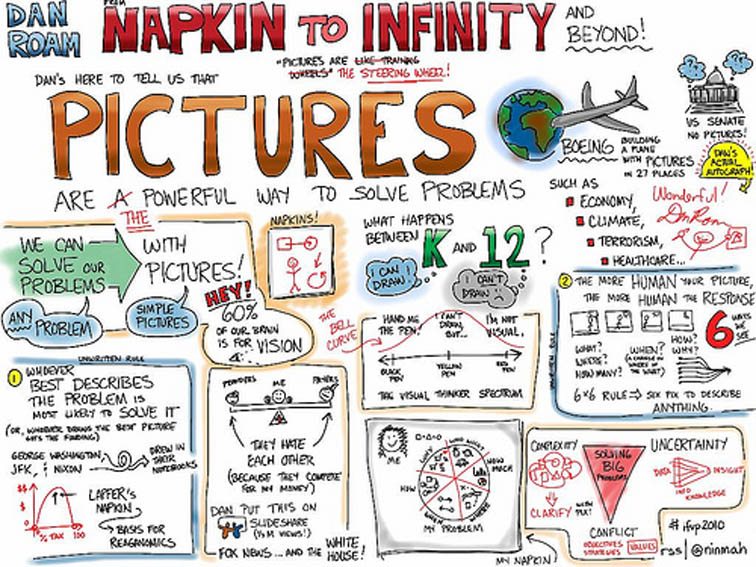 DAN ROAM
FROM
NAPKIN TO INFINITY
AND BEYOND!
"PICTURES ARE LIKE TRAINING
WHEELS" THE STEERING WHEEL!
DAN'S HERE TO TELL US THAT
PICTURES
ARE A POWERFUL WAY TO SOLVE PROBLEMS
THE
BOEING
BUILDING
A PLANE
WITH PICTURES
IN 27 PLACES
US SENATE
NO PICTURES!
DAN'S
ACTUAL
AUTOGRAPH!
SUCH AS
ECONOMY,
CLIMATE,
TERRORISM,
HEALTHCARE...
Wonderful!
Dan Roam
WE CAN
SOLVE OUR
PROBLEMS
WITH
PICTURES!
ANY
PROBLEM
SIMPLE
PICTURES
HEY!
60%
OF OUR BRAIN
IS FOR VISION
NAPKINS!
WHAT HAPPENS
BETWEEN K AND 12?
I CAN
DRAW!
I CAN'T
DRAW
THE
BELL
CURVE
HAND ME
THE PEN!
I CAN'T
DRAW,
BUT...
I'M NOT
VISUAL,
BLACK
PEN
YELLOW
PEN
RED
PEN
THE VISUAL THINKER SPECTRUM
UNWRITTEN RULE
2 THE MORE HUMAN YOUR PICTURE,
THE MORE HUMAN THE RESPONSE
6 WAYS
WE
SEE
WHAT?
WHERE?
HOW MANY?
WHEN?
(A CHANGE OF
WHERE IN
THE WHAT)
HOW?
WHY?
6x6 RULE → SIX PIX TO DESCRIBE
ANYTHING.
UNWRITTEN RULE
1 WHOEVER
BEST DESCRIBES
THE PROBLEM IS
MOST LIKELY TO SOLVE IT
(OR, WHOEVER DRAWS THE BEST PICTURE
GETS THE FUNDING)
GEORGE WASHINGTON,
JFK, & NIXON
DREW IN
THEIR
NOTEBOOKS
$$
$
0 % TAX 100
LAFFER'S
NAPKIN
BASIS FOR
REAGANOMICS
ME
THEY HATE
EACH OTHER
(BECAUSE THEY COMPETE
FOR MY MONEY)
DAN PUT THIS ON
SLIDESHARE
FOX NEWS... AND THE WHITE
HOUSE!
ME
WHO WHAT
HOW
MUCH
WHERE
WHEN
HOW
WHY
MY PROBLEM
MY NAPKIN!
COMPLEXITY
CLARIFY WITH PIX!
SOLVING
BIG
PROBLEMS
CONFLICT
OBJECTIVES
STRATEGIES
VALUES
UNCERTAINTY
DATA
INSIGHT
INFO
KNOWLEDGE
#ifvp2010
rss | @ninmah